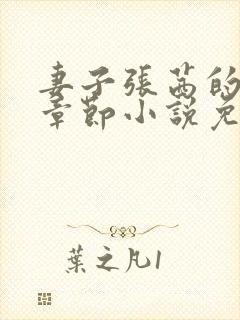 妻子張茜的
章節小説免
葉之凡1